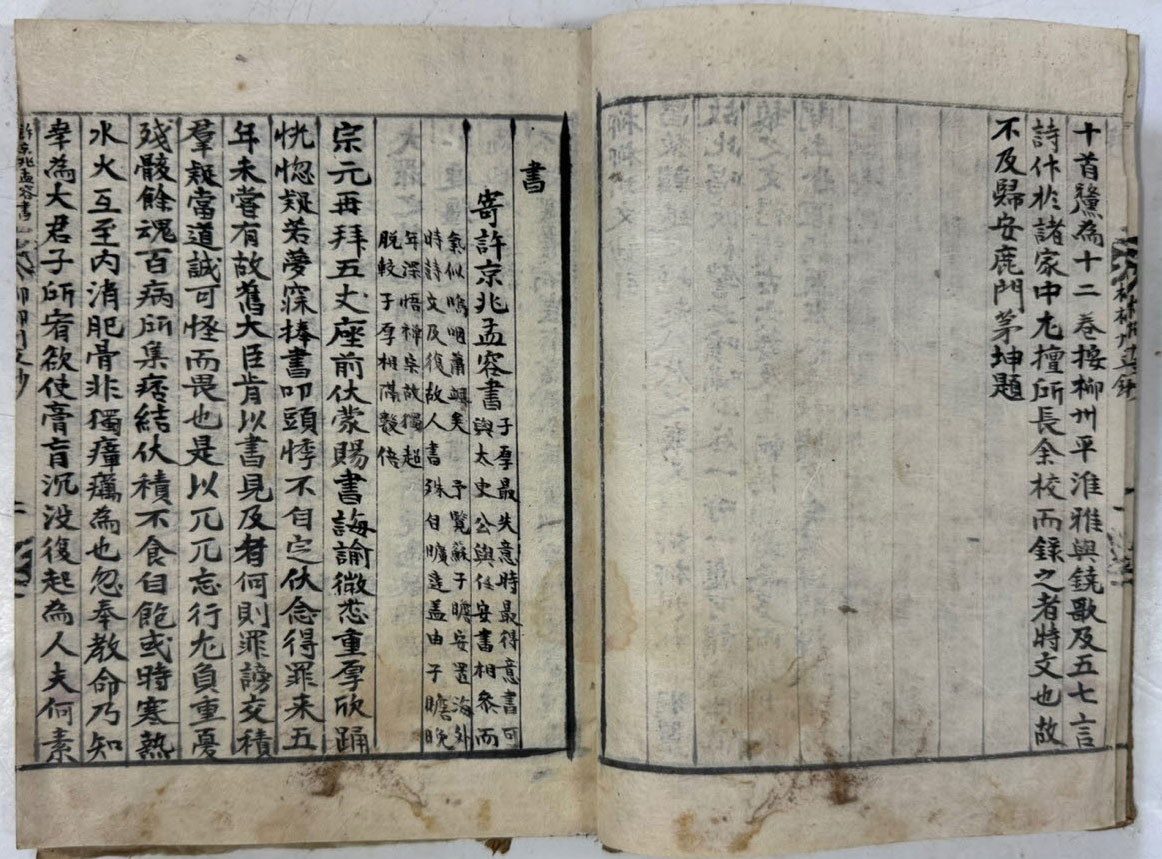 十首釐為十二卷按柳州平淮雅與鐃歌及五七言
詩仆於諸家中尤擅所長余校而錄之者時文也故
不及歸安鹿門茅坤題
書
寄許京兆孟容書
子厚最失意時最得意書可
與太史公與任安書相參而
氣似嗚咽蕭颯矣 予覽蘇子瞻安置海外
時詩文及復故人書殊自曠達蓋由子瞻晚
年深悟禪宗故獨超
脫較子厚相隔數倍
宗元再拜五丈座前伏蒙賜書誨諭微悉重厚欣踊
恍惚疑若夢寐捧書叩頭悸不自定伏念得罪来五
年未嘗有故舊大臣肯以書見及者何則罪謗交積
羣疑當道誠可怪而畏也是以兀兀忘行尤負重憂
殘骸餘魂百病所集痞結伏積不食自飽或時寒熱
水火互至内消肥骨非獨瘴癘為也忽奉教命乃知
幸為大君子所宥欲使膏肓沉没復起為人夫何素